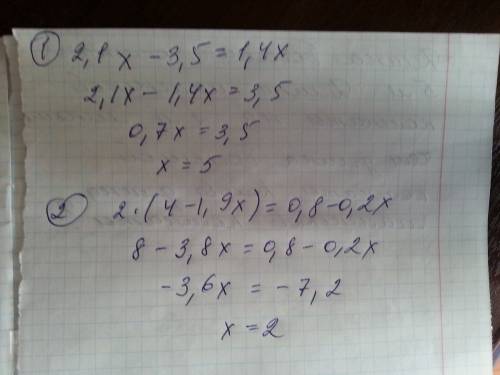 1 2,1x - 3,5 = 1,4x
2,1x - 1,4x = 3,5
0,7x = 3,5
x = 5
2 2·(4 - 1,9x) = 0,8 - 0,2x
8 - 3,8x = 0,8 - 0,2x
-3,6x = -7,2
x = 2